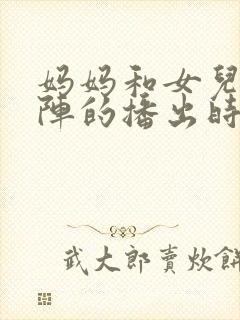 妈妈和女兒
陣的播出時
武大郎賣炊餅